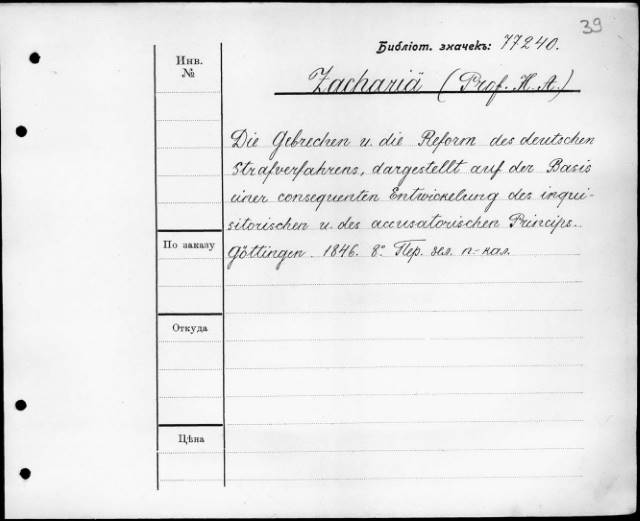 39
Библіот. значекъ: 77240.
Инв.
№
Zachariä (Prof. H. A.)
Die Gebrechen u. die Reform des deutschen
Strafverfahrens, dargestellt auf der Basis
einer consequenten Entwickelung des inqui-
sitorischen u. des accusatorischen Princips.
По заказу
Göttingen. 1846. 8º Пер. зел. п-кал.
Откуда
Цѣна